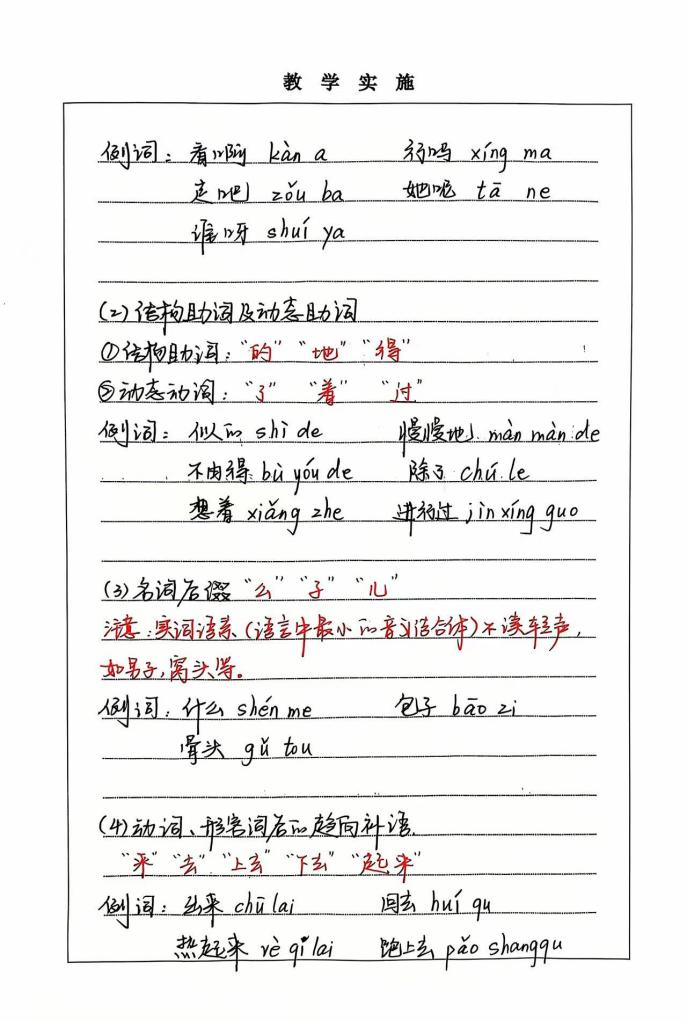 教学实施
例词：看啊 kàn a 行吗 xíng ma
走吧 zǒu ba 她呢 tā ne
谁呀 shuí ya
(2)结构助词及动态助词
①结构助词："的" "地" "得"
②动态动词："了" "着" "过"
例词：似的 shì de 慢慢地 màn màn de
不由得 bù yóu de 除了 chú le
想着 xiǎng zhe 进行过 jìn xíng guo
(3)名词后缀 "么" "子" "儿"
注意：实词语素(语言中最小的音义结合体)不读轻声，
如男子，窝头等。
例词：什么 shén me 包子 bāo zi
骨头 gǔ tou
(4)动词、形容词后的趋向补语.
"来" "去" "上去" "下去" "起来"
例词：出来 chū lai 回去 huí qu
热起来 rè qi lai 跑上去 pǎo shangqu